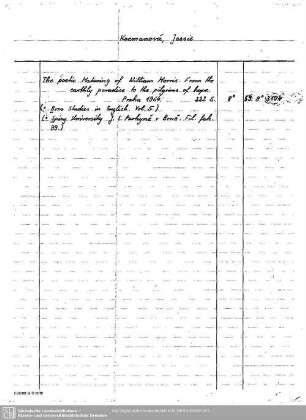 Kocmanová, Jessie
The poetic Maturing of William Morris. From the
earthly paradise to the pilgrims of hope.
Praha 1964. 222 S. 8°
(= Brno Studies in English. Vol. 5.)
(= Spisy University J. E. Purkyně v Brně. Fil. fak.
99.)
Sächsische Landesbibliothek -
Staats- und Universitätsbibliothek Dresden